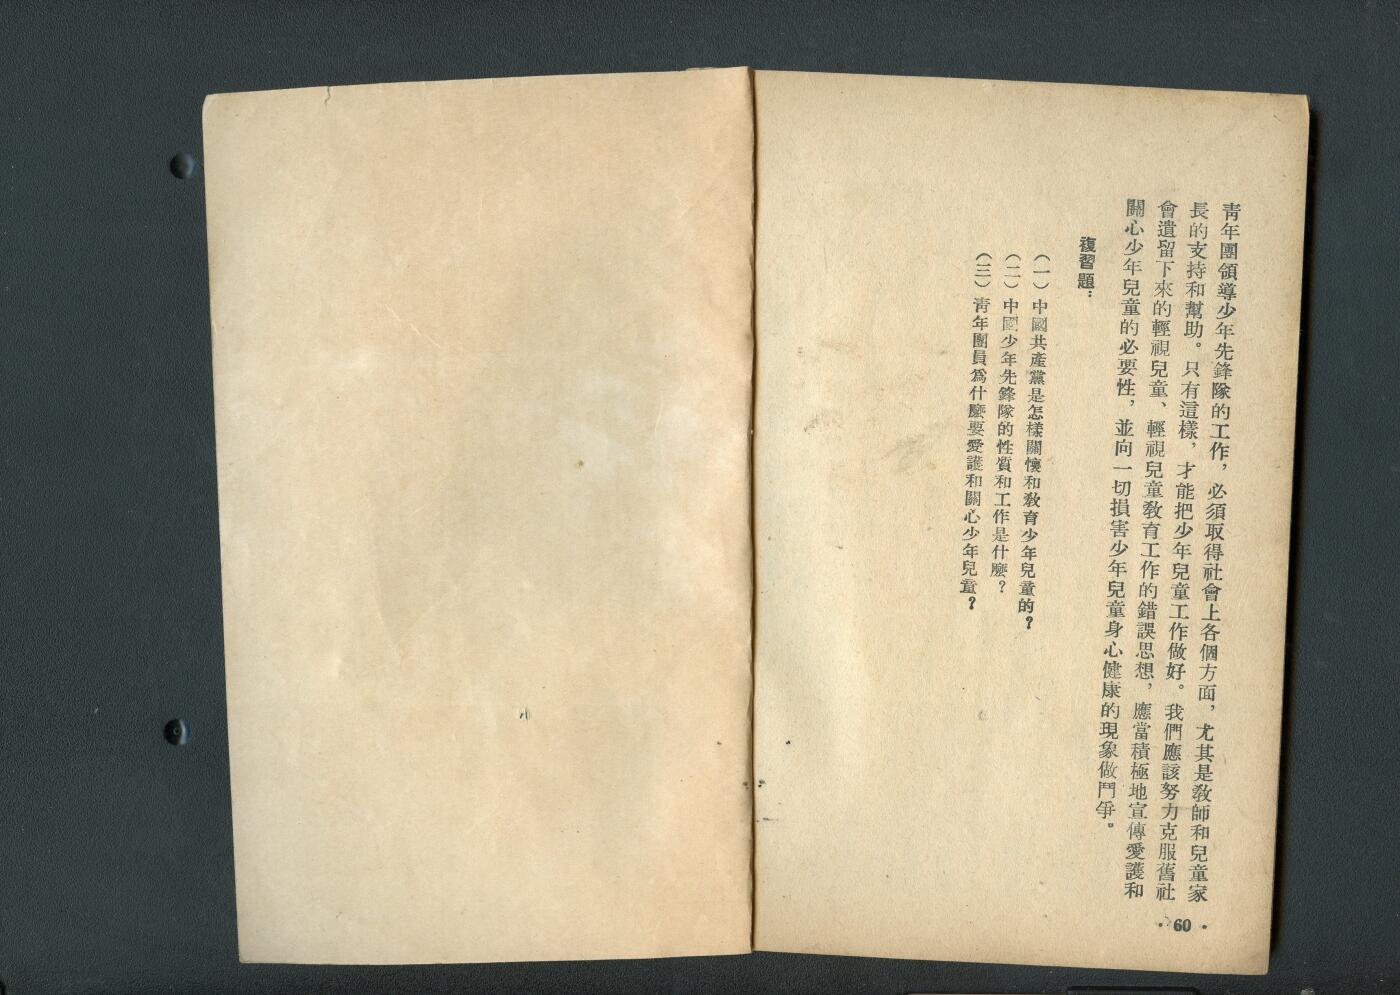 靑年團領導少年先鋒隊的工作，必須取得社會上各個方面，尤其是敎師和兒童家
長的支持和幫助。只有這樣，才能把少年兒童工作做好。我們應該努力克服舊社
會遺留下來的輕視兒童、輕視兒童敎育工作的錯誤思想，應當積極地宣傳愛護和
關心少年兒童的必要性，並向一切損害少年兒童身心健康的現象做鬥爭。
複習題：
（一）中國共產黨是怎樣關懷和敎育少年兒童的？
（二）中國少年先鋒隊的性質和工作是什麼？
（三）靑年團員爲什麼要愛護和關心少年兒童？
·60·